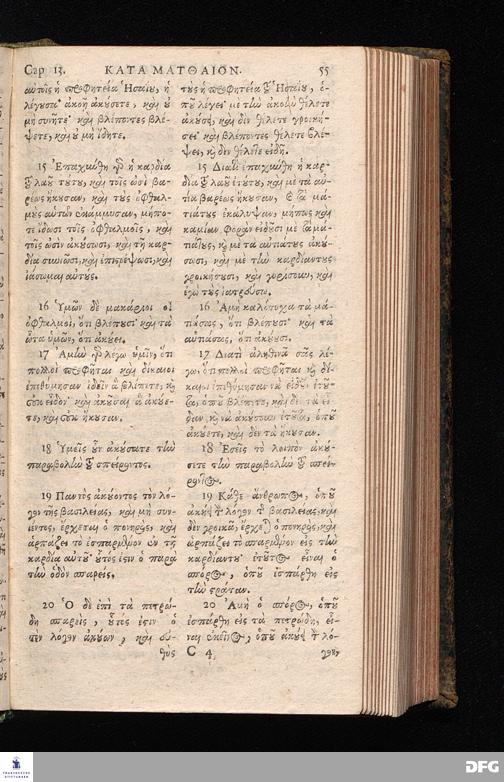 Cap 13. ΚΑΤΑ ΜΑΤΘΑΙΟΝ. 55
αὐτοῖς ἡ προφητεία Ἡσαΐου, ἡ
λέγουσα· ἀκοῇ ἀκούσετε, καὶ οὐ
μὴ συνῆτε· καὶ βλέποντες βλέ-
ψετε, καὶ οὐ μὴ ἴδητε.
15 Ἐπαχύνθη γὰρ ἡ καρδία
τοῦ λαοῦ τούτου, καὶ τοῖς ὠσὶ βα-
ρέως ἤκουσαν, καὶ τοὺς ὀφθαλ-
μοὺς αὑτῶν ἐκάμμυσαν, μήπο-
τε ἴδωσι τοῖς ὀφθαλμοῖς, καὶ
τοῖς ὠσὶν ἀκούσωσι, καὶ τῇ καρ-
δίᾳ συνῶσι, καὶ ἐπιστρέψωσι, καὶ
ἰάσωμαι αὐτούς.
16 Ὑμῶν δὲ μακάριοι οἱ
ὀφθαλμοὶ, ὅτι βλέπουσι· καὶ τὰ
ὦτα ὑμῶν, ὅτι ἀκούει.
17 Ἀμὴν γὰρ λέγω ὑμῖν, ὅτι
πολλοὶ προφῆται καὶ δίκαιοι
ἐπεθύμησαν ἰδεῖν ἃ βλέπετε, καὶ
οὐκ εἶδον· καὶ ἀκοῦσαι ἃ ἀκούε-
τε, καὶ οὐκ ἤκουσαν.
18 Ὑμεῖς οὖν ἀκούσατε τὴν
παραβολὴν τοῦ σπείροντος.
19 Παντὸς ἀκούοντος τὸν λό-
γον τῆς βασιλείας, καὶ μὴ συν-
ιέντος, ἔρχεται ὁ πονηρὸς, καὶ
ἁρπάζει τὸ ἐσπαρμένον ἐν τῇ
καρδίᾳ αὐτοῦ· οὗτός ἐστιν ὁ παρὰ
τὴν ὁδὸν σπαρείς.
20 Ὁ δὲ ἐπὶ τὰ πετρώ-
δη σπαρεὶς, οὗτός ἐστιν ὁ
τὸν λόγον ἀκούων, καὶ εὐ-
θὺς
τους ἡ προφητεία τοῦ Ἡσαΐου, ὁ-
που λέγει· με τὴν ἀκοὴν θέλετε
ἀκούσῃ, καὶ δὲν θέλετε γροική-
σει· καὶ βλέποντες θέλετε βλέ-
ψει, καὶ δὲν θέλετε εἰδῇ.
15 Διατὶ ἐπαχύνθη ἡ καρ-
δία τοῦ λαοῦ ἐτούτου, καὶ με τὰ αὐ-
τία βαρέως ἤκουσαν, καὶ τὰ μα-
τιά τους ἐκάλυψαν, μήπως καὶ
καμίαν φορὰν εἰδοῦσι με τὰ μά-
τιά τους, καὶ με τὰ αὐτιά τους ἀκού-
σουσι, καὶ με τὴν καρδίαν τους
γροικήσουσι, καὶ γυρίσουν, καὶ
ἐγὼ τοὺς ἰατρεύσω.
16 Ἀμὴ καλότυχα τὰ μά-
τιά σας, ὅτι βλέπουσι· καὶ τὰ
αὐτιά σας, ὅτι ἀκούουσι.
17 Διατὶ ἀληθινὰ σᾶς λέ-
γω, ὅτι πολλοὶ προφῆται καὶ δί-
καιοι ἐπιθύμησαν νὰ εἰδοῦν ἐτοῦ-
τα, ὁποῦ βλέπετε, καὶ δὲν τὰ εἶ-
δαν, καὶ νὰ ἀκούσουν ἐτοῦτα, ὁποῦ
ἀκούετε, καὶ δὲν τὰ ἤκουσαν.
18 Ἐσεῖς τὸ λοιπὸν ἀκού-
σετε τὴν παραβολὴν τοῦ σπεί-
ροντος.
19 Κάθε ἄνθρωπος, ὁποῦ
ἀκούει τὸν λόγον τῆς βασιλείας, καὶ
δὲν γροικᾷ, ἔρχεται ὁ πονηρὸς, καὶ
ἁρπάζει τὸ σπαρμένον εἰς τὴν
καρδίαν του· ἐτοῦτος εἶναι ὁ
σπόρος, ὁποῦ ἐσπάρθη εἰς
τὴν στράταν.
20 Ἀμὴ ὁ σπόρος, ὁποῦ
ἐσπάρθη εἰς τὰ πετρώδη, εἶ-
ναι ἐκεῖνος, ὁποῦ ἀκούει τὸν λό-
C 4 γον,
DFG